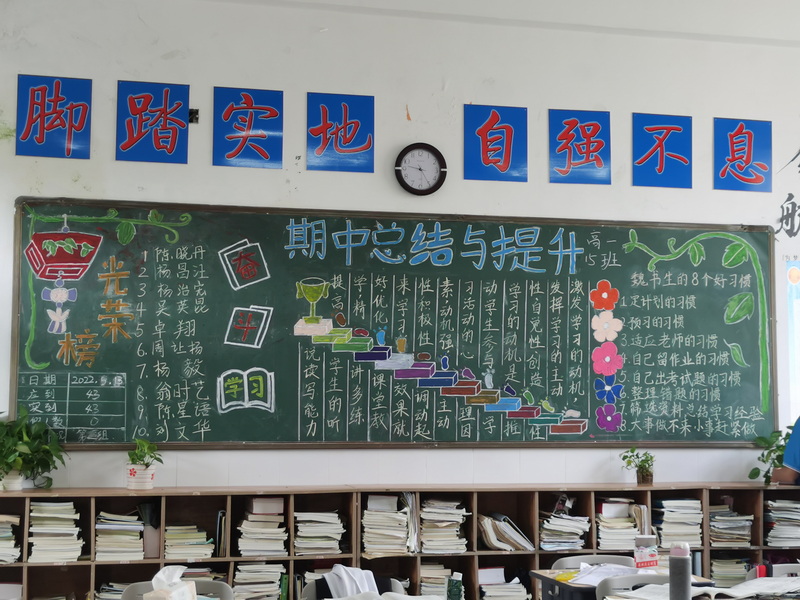 脚踏实地 自强不息
期中总结与提升
高一
15班
光荣榜
1 陈晓丹
2 杨昌
3 杨治宏
4 吴英昆
5. 卓
6. 周翔
7. 杨
8. 翁
9. 陈
10 刘文华
日期 2022.5.13
应到 43
实到 43
0
第三组
奋
斗
学习
激发学习的动机，
发挥学习的主动
性自觉性创造性
学习的动机是推
动学生参与学
习活动的心理因
素。动机强主动
性积极性调动起
来，学习效果就
好优化课堂教
学，精讲多练
提高学生的听
说读写能力
魏书生的8个好习惯
1.定计划的习惯
2.预习的习惯
3.适应老师的习惯
4.自己留作业的习惯
5.自己出考试题的习惯
6.整理错题的习惯
7.筛选资料总结学习经验
8.大事做不来小事赶紧做
航